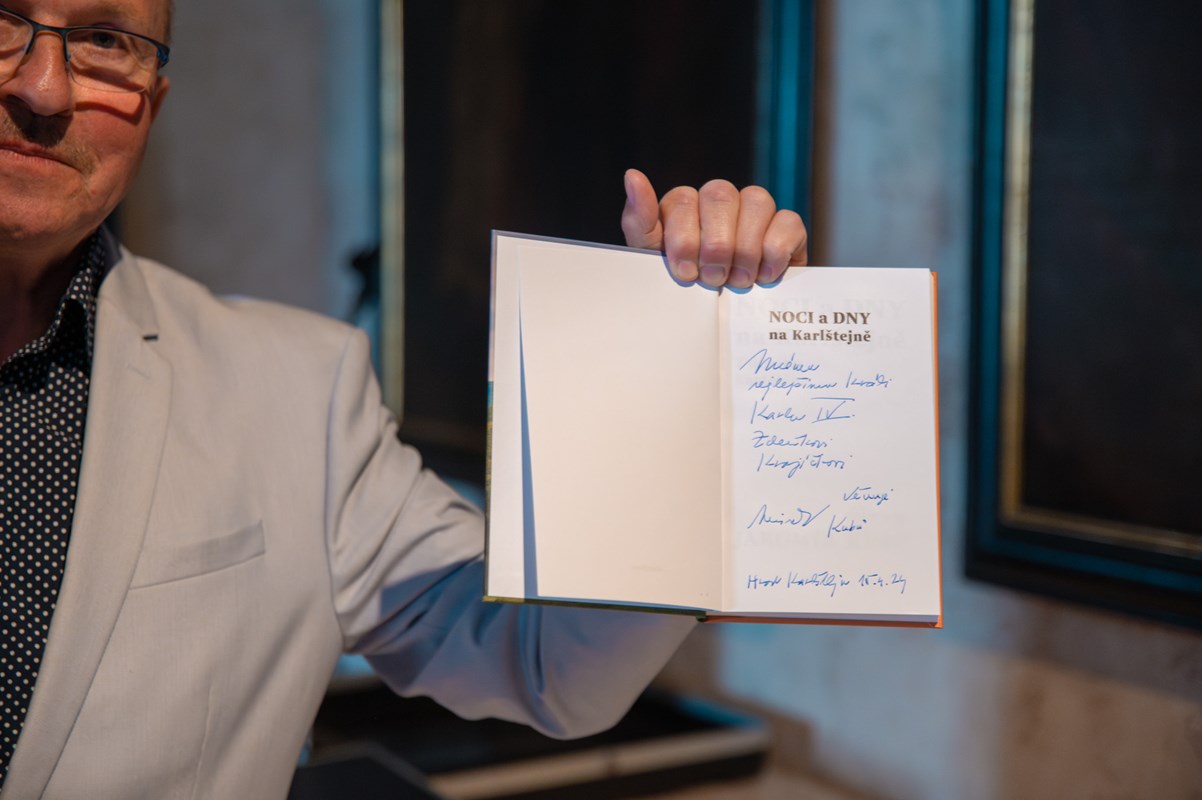 NOCI a DNY
na Karlštejně
nejlepšímu Králi
Karlu IV.
Zdeňkovi
Krajíčkovi
věnuje
Kubů
Hrad Karlštejn 15.4.24